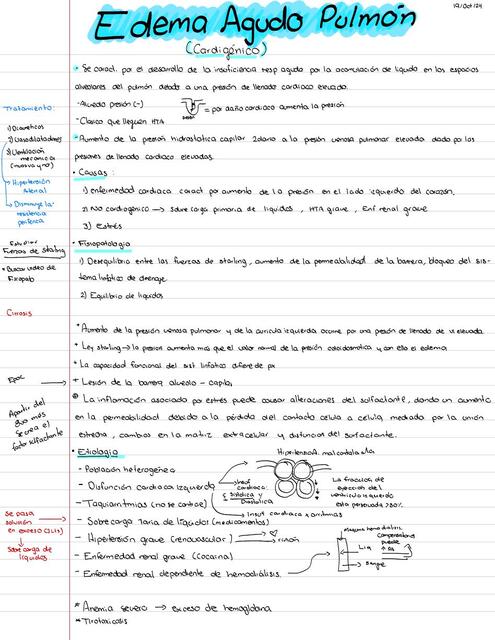 19/Oct/24
Edema Agudo Pulmón
(Cardigénico)
• Se caract. por el desarrollo de la insuficiencia resp aguda por la acumulación de liquido en los espacios
alveolares del pulmón debido a una presión de llenado cardiaco elevada.
-Alveolo presión (-)
= por daño cardiaco aumenta la presión
-Clasico que lleguen HTA
• Aumento de la presión hidrostatica capilar 2daria a la presión venosa pulmonar elevada dado por las
presiones de llenado cardiaco elevadas.
Tratamiento:
1) Diureticos
2) Vasodilatadores
3) Ventilación
mecanica
(invasiva y no)
→ Hipertensión
arterial
→ Disminuye la
resistencia
periferica
• Causas:
1) enfermedad cardiaca caract por aumento de la presión en el lado izquierdo del corazón.
2) No cardiogénico → Sobre carga primaria de liquidos, HTA grave, Enf renal grave
3) Estrés
Estudiar
Fuerzas de Starling
• Buscar video de
Fisiopato
• Fisiopatologia
1) Desequilibrio entre las fuerzas de starling, aumento de la permeabilidad de la barrera, bloqueo del sis-
tema linfatico de drenaje.
2) Equilibrio de liquidos
Cirrosis
* Aumento de la presion venosa pulmonar y de la auricula izquierda ocurre por una presión de llenado de vi elevada.
* Ley starling → la presion aumenta más que el valor normal de la presión coloidosmotica y con ello el edema
* La capacidad funcional del sist linfatico difiere de px
Epoc →
+ Lesión de la barrera alveolo - capilar
Apartir del
8vo mes
se crea el
factor sulfactante
La inflamación asociado por estres puede causar alteraciones del sulfactante, dando un aumento
en la permeabilidad debido a la pérdida del contacto celula a celula, mediado por la unión
estrecha, cambios en la matriz extracelular y disfuncion del surfactante.
• Etiologia
Hipertensión A. mal controlada
- Población heterogénea
- Disfunción cardiaca izquierda
insuf
cardiaca:
Sistolica y
Diastolica
La fracción de
eyección del
ventriculo izquierdo
esta preservada >50%
- Taquiarritmias (no se contrae)
→ Insuf cardiaca x arritmias
Se pasa
solución
en exceso (3Lts)
Sobre carga de
liquidos
- Sobre carga 1aria de liquido (medicamentos)
- Hipertensión grave (renovascular)
→ riñón
- Enfermedad renal grave (Cocaina)
- Enfermedad renal dependiente de hemodiálisis.
Liq
Sangre
* Anemia severa → exceso de hemoglobina
* Tirotoxicosis